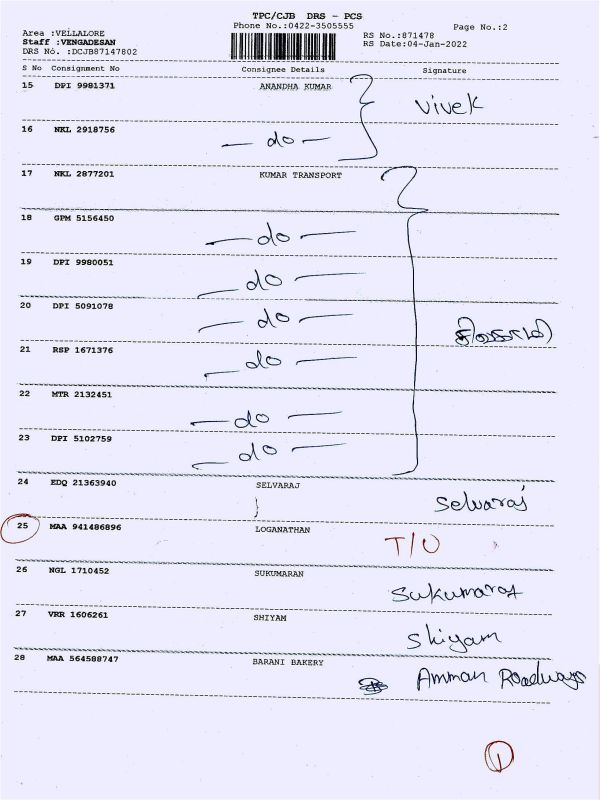 TPC/CJB DRS - PCS
Phone No.:0422-3505555
Page No.:2
Area :VELLALORE
Staff :VENGADESAN
DRS No. :DCJB87147802
RS No.:871478
RS Date:04-Jan-2022
S No Consignment No Consignee Details Signature
15 DPI 9981371 ANANDHA KUMAR Vivek
16 NKL 2918756 — do —
17 NKL 2877201 KUMAR TRANSPORT
18 GPM 5156450 — do —
19 DPI 9980051 — do —
20 DPI 5091078 — do —
21 RSP 1671376 — do —
22 MTR 2132451 — do —
23 DPI 5102759 — do —
24 EDQ 21363940 SELVARAJ Selvaraj
25 MAA 941486896 LOGANATHAN T/U
26 NGL 1710452 SUKUMARAN Sukumaran
27 VRR 1606261 SHIYAM Shiyam
28 MAA 564588747 BARANI BAKERY Amman Roadways
1